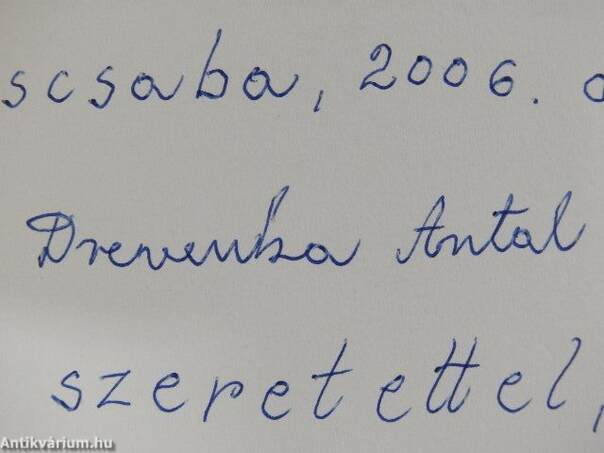 scsaba, 2006.
Drevenka Antal
szeretettel,
Antikvárium.hu